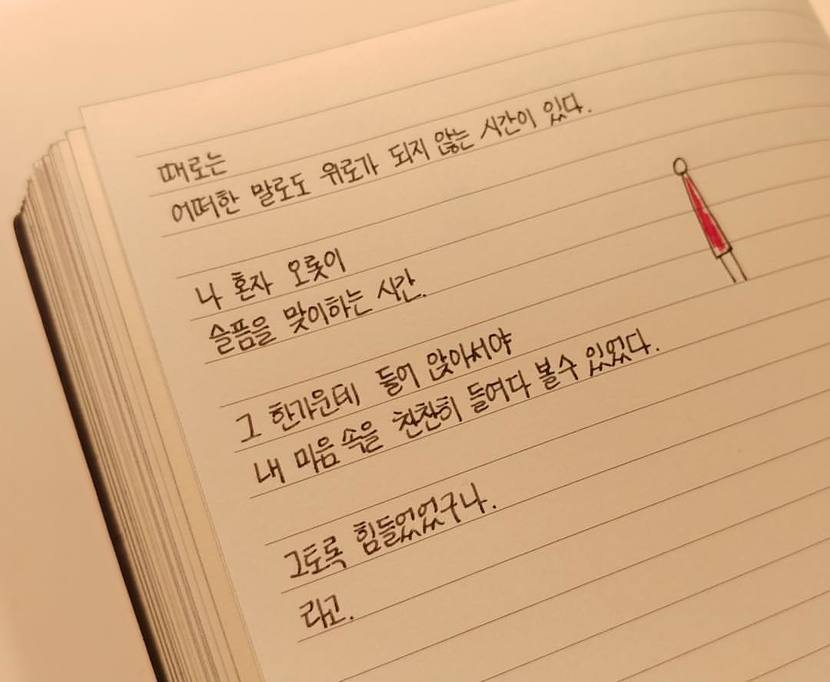 때로는
어떠한 말로도 위로가 되지 않는 시간이 있다.
나 혼자 오롯이
슬픔을 맞이하는 시간.
그 한가운데 들어 앉아서야
내 마음 속을 찬찬히 들여다 볼수 있었다.
그토록 힘들었었구나.
라고.